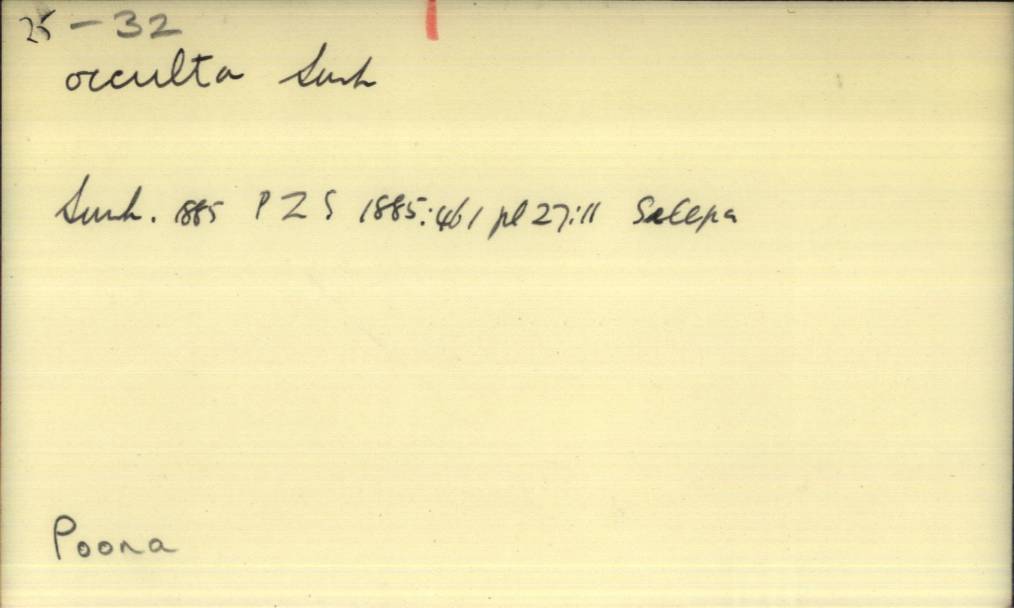 25 - 32
occulta Swinh
Swinh. 1885 PZS 1885:461 pl 27:11 Salepa
Poona